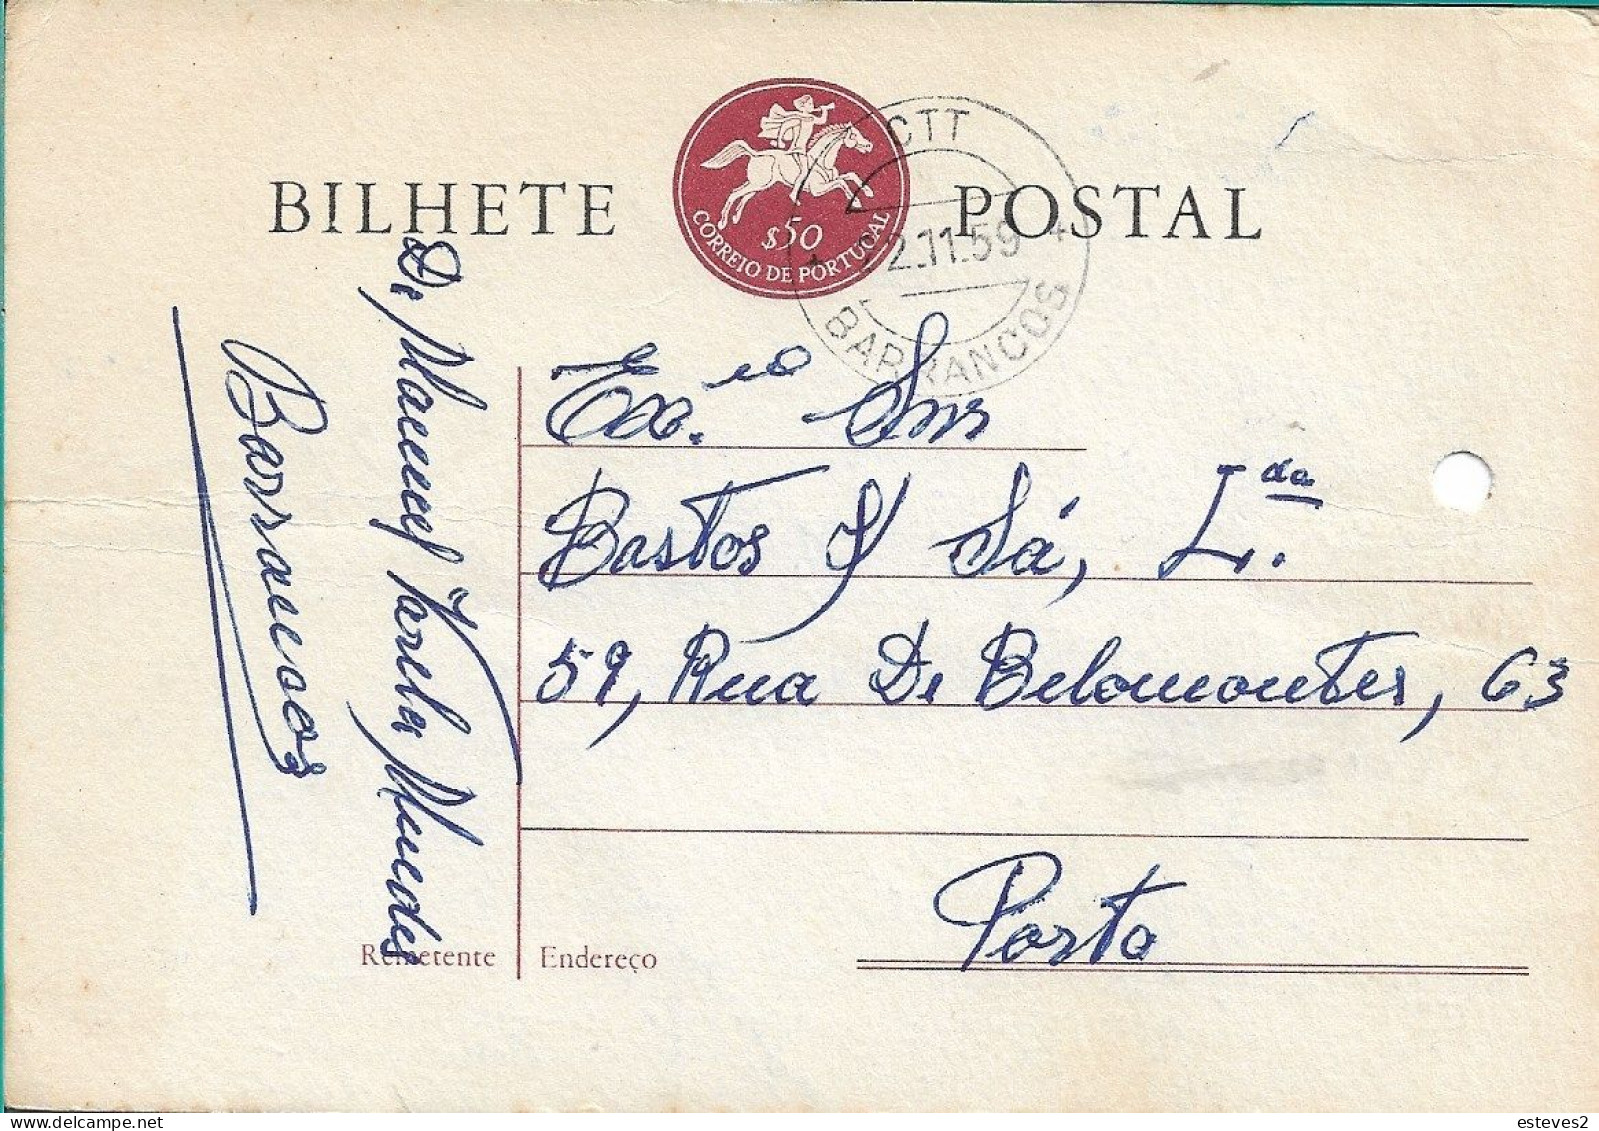 BILHETE POSTAL
$50
CORREIO DE PORTUGAL
CTT
2.11.59
BARRANCOS
De Manuel Varela Mendes
Barrancos
Ex.mo Snrs
Bastos & Sá, L.da
59, Rua De Belomontes, 63
Porto
Remetente
Endereço
esteves2